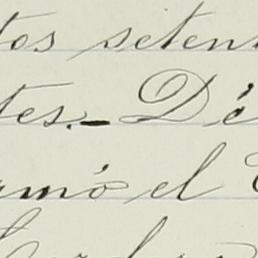 tos seten
tes._ Dé
amó el